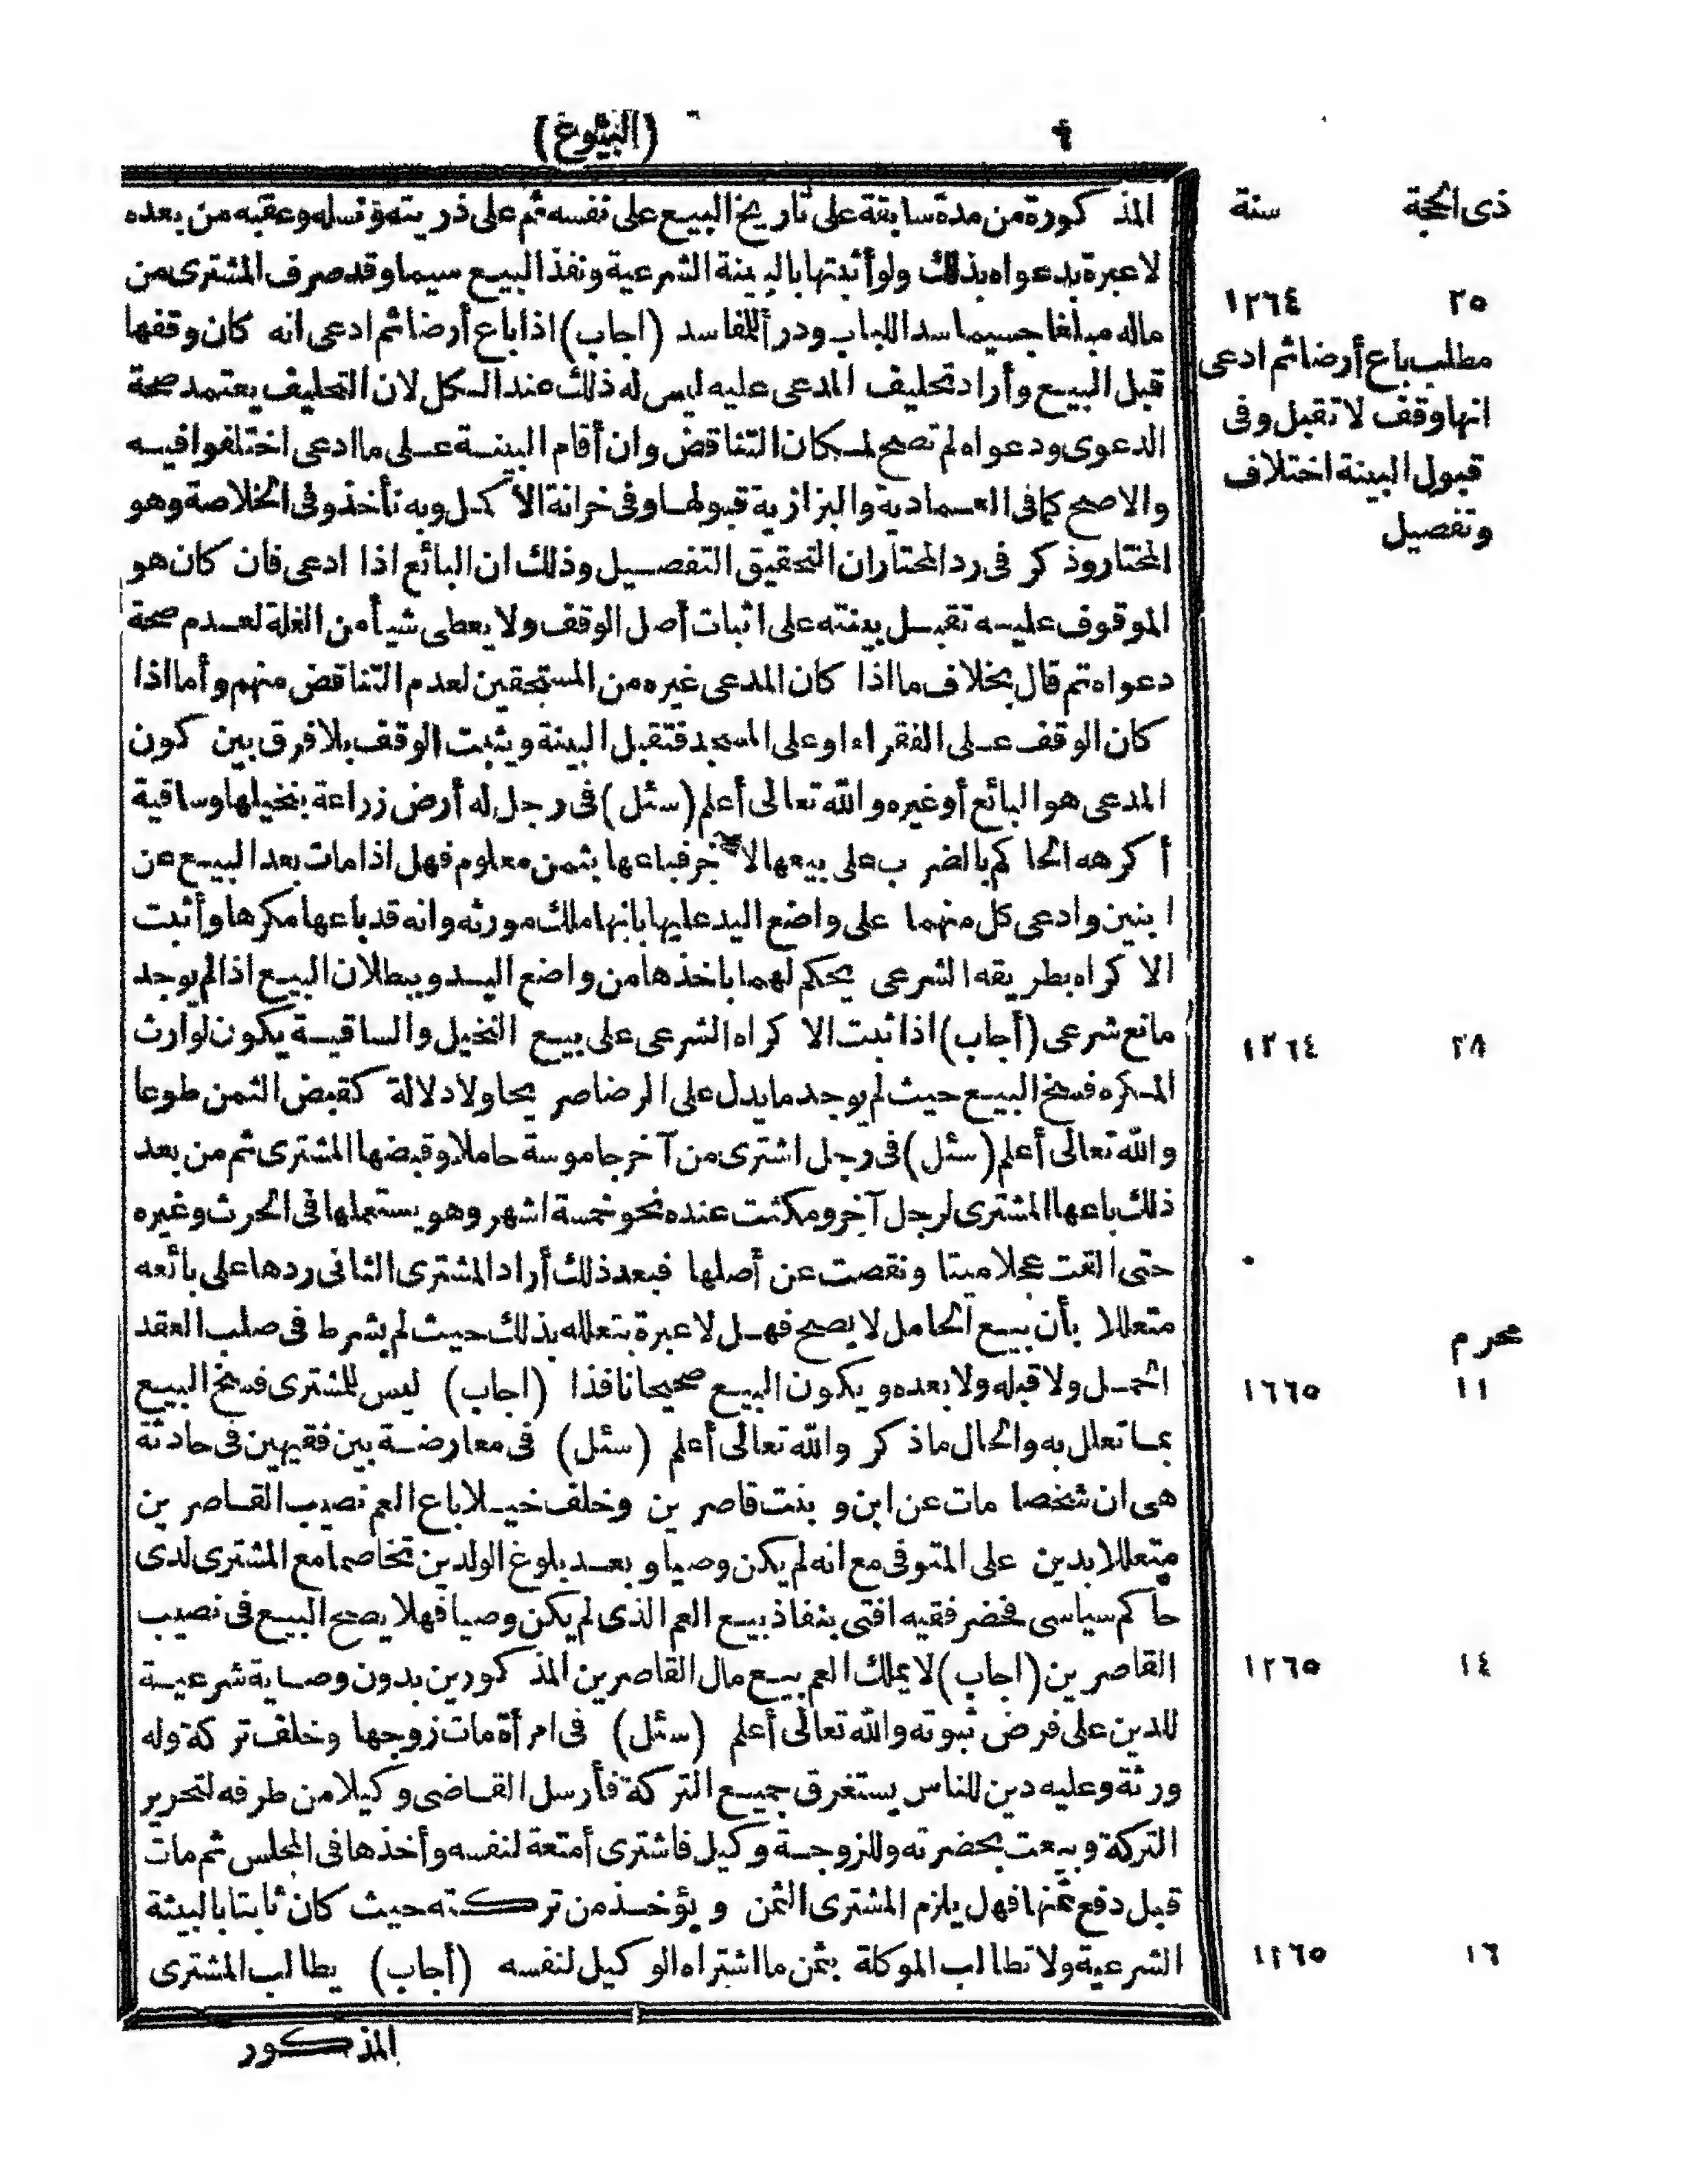 (البيوع)
المذكورة من مدة سابقة على تاريخ البيع على نفسه ثم على ذريته ونسله وعقبه من بعده
لا عبرة بدعواه بذلك ولو أثبتها بالبينة الشرعية ونفذ البيع سيما وقد صرف المشترى من
ماله مبلغا جسيما سدا للباب ودرأ للمفاسد (اجاب) اذا باع أرضا ثم ادعى انه كان وقفها
قبل البيع وأراد تحليف المدعى عليه ليس له ذلك عند الكل لان التحليف يعتمد صحة
الدعوى ودعواه لم تصح لمكان التناقض وان أقام البينة على ما ادعى اختلفوا فيه
والاصح كما فى العمادية والبزازية قبولها وفى خزانة الاكمل وبه نأخذ وفى الخلاصة وهو
المختار وذكر فى رد المحتار ان التحقيق التفصيل وذلك ان البائع اذا ادعى فان كان هو
الموقوف عليه تقبل بينته على اثبات أصل الوقف ولا يعطى شيأ من الغلة لعدم صحة
دعواه ثم قال بخلاف ما اذا كان المدعى غيره من المستحقين لعدم التناقض منهم وأما اذا
كان الوقف على الفقراء او على المسجد فتقبل البينة ويثبت الوقف بلا فرق بين كون
المدعى هو البائع أو غيره والله تعالى أعلم (سئل) فى رجل له أرض زراعة بنخيلها وساقية
أكرهه الحاكم بالضرب على بيعها لآخر فباعها بثمن معلوم فهل اذا مات بعد البيع عن
ابنين وادعى كل منهما على واضع اليد عليها بانها ملك مورثه وانه قد باعها مكرها وأثبت
الاكراه بطريقه الشرعى يحكم لهما باخذها من واضع اليد وببطلان البيع اذا لم يوجد
مانع شرعى (أجاب) اذا ثبت الاكراه الشرعى على بيع النخيل والساقية يكون لوارث
المكره فسخ البيع حيث لم يوجد ما يدل على الرضا صريحا ولا دلالة كقبض الثمن طوعا
والله تعالى أعلم (سئل) فى رجل اشترى من آخر جاموسة حاملا وقبضها المشترى ثم من بعد
ذلك باعها المشترى لرجل آخر ومكثت عنده نحو خمسة اشهر وهو يستعملها فى الحرث وغيره
حتى القت عجلا ميتا ونقصت عن أصلها فبعد ذلك أراد المشترى الثانى ردها على بائعه
متعللا بأن بيع الحامل لا يصح فهل لا عبرة بتعلله بذلك حيث لم يشرط فى صلب العقد
الحمل ولا قبله ولا بعده ويكون البيع صحيحا نافذا (اجاب) ليس للمشترى فسخ البيع
بما تعلل به والحال ما ذكر والله تعالى أعلم (سئل) فى معارضة بين فقيهين فى حادثة
هى ان شخصا مات عن ابن و بنت قاصرين وخلف خيلا باع العم نصيب القاصرين
متعللا بدين على المتوفى مع انه لم يكن وصيا وبعد بلوغ الولدين تخاصما مع المشترى لدى
حاكم سياسى فحضر فقيه افتى بنفاذ بيع العم الذى لم يكن وصيا فهلا يصح البيع فى نصيب
القاصرين (اجاب) لا يملك العم بيع مال القاصرين المذكورين بدون وصاية شرعية
للدين على فرض ثبوته والله تعالى أعلم (سئل) فى امرأة مات زوجها وخلف تركة وله
ورثة وعليه دين للناس يستغرق جميع التركة فأرسل القاضى وكيلا من طرفه لتحرير
التركة وبيعت بحضرته وللزوجة وكيل فاشترى أمتعة لنفسه وأخذها فى المجلس ثم مات
قبل دفع ثمنها فهل يلزم المشترى الثمن ويؤخذ من تركته حيث كان ثابتا بالبينة
الشرعية ولا تطالب الموكلة بثمن ما اشتراه الوكيل لنفسه (أجاب) يطالب المشترى
المذكور
ذى الحجة سنة
٢٥ ١٢٦٤
مطلب باع أرضا ثم ادعى
انها وقف لا تقبل وفى
قبول البينة اختلاف
وتفصيل
٢٨ ١٢٦٤
محرم
١١ ١٢٦٥
١٤ ١٢٦٥
١٦ ١٢٦٥